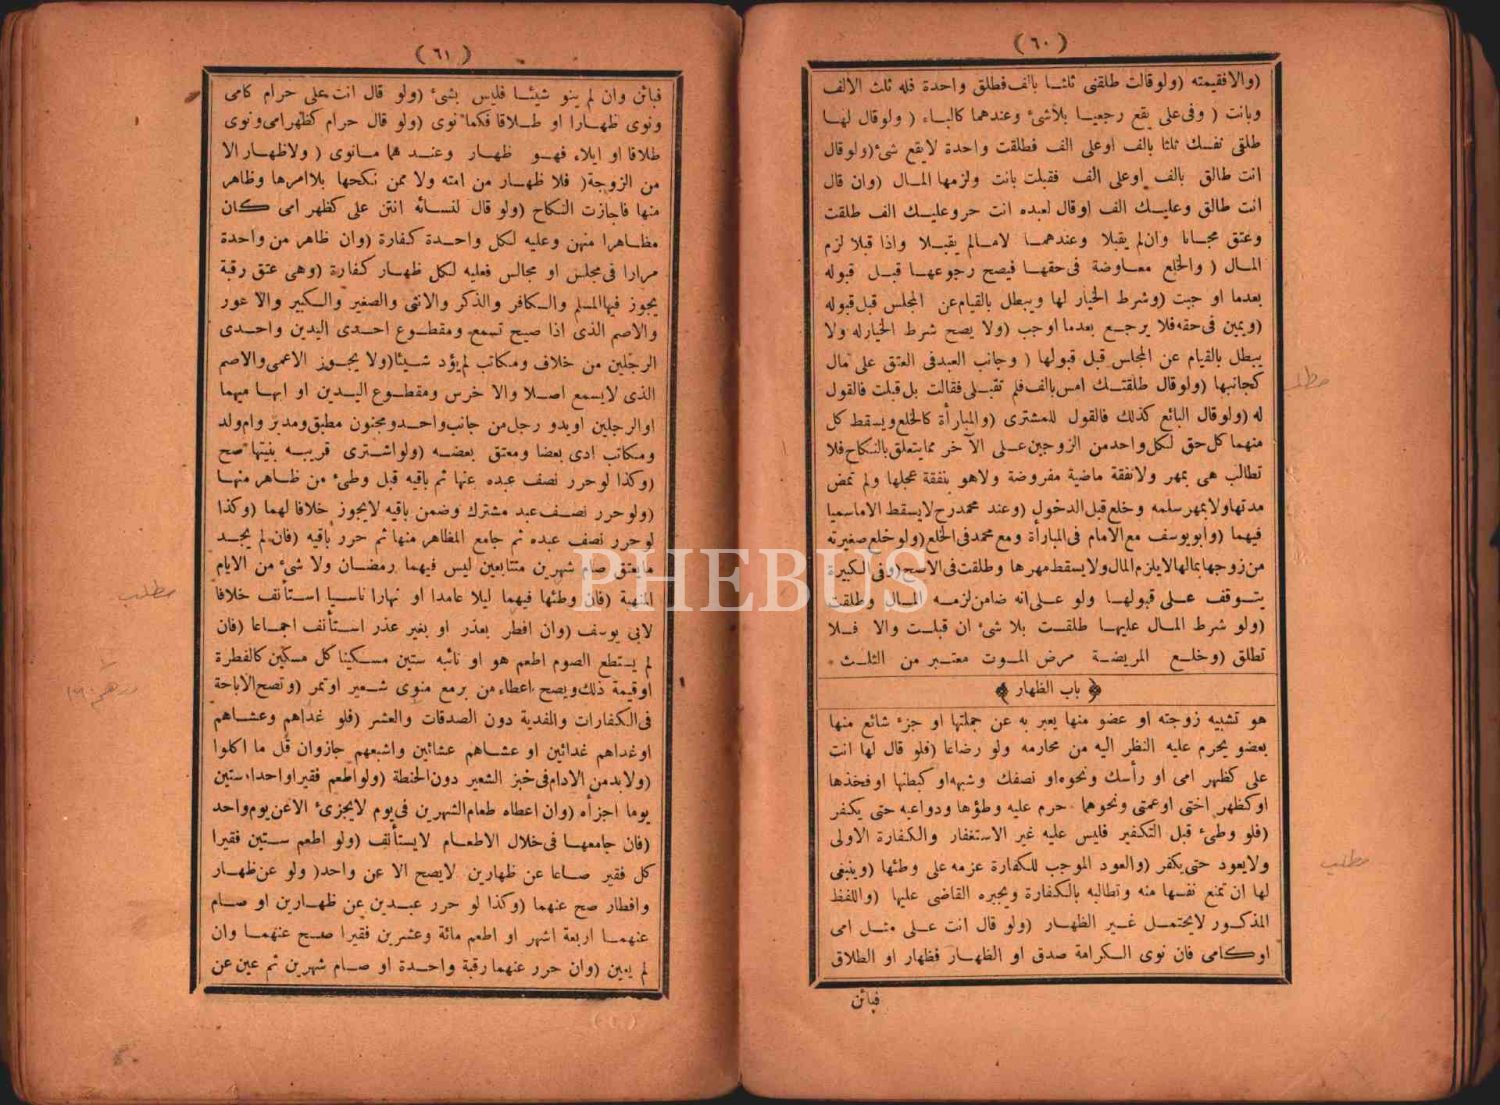 ( ٦٠ )
(والافقيمته (ولوقالت طلقنى ثلثا بالف فطلق واحدة فله ثلث الالف
وبانت ( وفى على يقع رجعيا بلاشئ وعندهما كالباء ( ولوقال لها
طلقى نفسك ثلثا بالف اوعلى الف فطلقت واحدة لايقع شئ (ولوقال
انت طالق بالف اوعلى الف فقبلت بانت ولزمها المال (وان قال
انت طالق وعليك الف اوقال لعبده انت حر وعليك الف طلقت
وعتق مجانا وان لم يقبلا وعندهما لامالم يقبلا واذا قبلا لزم
المال ( والخلع معاوضة فى حقها فيصح رجوعها قبل قبوله
بعدما او جبت (وشرط الخيار لها ويبطل بالقيام عن المجلس قبل قبوله
(ويمين فى حقه فلا يرجع بعدما اوجب (ولا يصح شرط الخيار له ولا
يبطل بالقيام عن المجلس قبل قبولها ( وجانب العبد فى العتق على مال
كجانبها (ولوقال طلقتك امس بالف فلم تقبلى فقالت بل قبلت فالقول
له (ولوقال البائع كذلك فالقول للمشترى (والمبارأة كالخلع ويسقط كل
منهما كل حق لكل واحد من الزوجين على الآخر مما يتعلق بالنكاح فلا
تطالب هى بمهر ولانفقة ماضية مفروضة ولاهو بنفقة عجلها ولم تمض
مدتها ولا بمهر سلمه وخلع قبل الدخول (وعند محمدرح لايسقط الا ماسميا
فيهما (وابويوسف مع الامام فى المبارأة ومع محمد فى الخلع (ولوخلع صغيرته
من زوجها بمالها لايلزم المال ولا يسقط مهرها وطلقت فى الاصح (وفى الكبيرة
يتوقف على قبولها ولو على انه ضامن لزمه المال وطلقت
(ولو شرط المال عليها طلقت بلا شئ ان قبلت والا فلا
تطلق (وخلع المريضة مرض الموت معتبر من الثلث *
﴿ باب الظهار ﴾
هو تشبيه زوجته او عضو منها يعبر به عن جملتها او جزء شائع منها
بعضو يحرم عليه النظر اليه من محارمه ولو رضاعا (فلو قال لها انت
على كظهر امى او رأسك ونحوه او نصفك وشبهه او كبطنها اوفخذها
اوكظهر اختى اوعمتى ونحوهما حرم عليه وطؤها ودواعيه حتى يكفر
(فلو وطئ قبل التكفير فليس عليه غير الاستغفار والكفارة الاولى
ولايعود حتى يكفر (والعود الموجب للكفارة عزمه على وطئها (وينبغى
لها ان تمنع نفسها منه وتطالبه بالكفارة ويجبره القاضى عليها (واللفظ
المذكور لايحتمل غير الظهار (ولو قال انت على مثل امى
اوكامى فان نوى الكرامة صدق او الظهار فظهار او الطلاق
فبائن
مطلب
مطلب
( ٦١ )
فبائن وان لم ينو شيئا فليس بشئ (ولو قال انت على حرام كامى
ونوى ظهارا او طلاقا فكما نوى (ولو قال حرام كظهر امى ونوى
طلاقا او ايلاء فهو ظهار وعندهما مانوى ( ولاظهار الا
من الزوجة( فلا ظهار من امته ولا ممن نكحها بلاامرها وظاهر
منها فاجازت النكاح (ولو قال لنسائه انتن على كظهر امى كان
مظاهرا منهن وعليه لكل واحدة كفارة (وان ظاهر من واحدة
مرارا فى مجلس او مجالس فعليه لكل ظهار كفارة (وهى عتق رقبة
يجوز فيها المسلم والكافر والذكر والانثى والصغير والكبير والاعور
والاصم الذى اذا صيح تسمع ومقطوع احدى اليدين واحدى
الرجلين من خلاف ومكاتب لم يؤد شيئا(ولا يجوز الاعمى والاصم
الذى لايسمع اصلا والا خرس ومقطوع اليدين او ابهاميهما
اوالرجلين اويدو رجل من جانب واحدو مجنون مطبق ومدبر وام ولد
ومكاتب ادى بعضا ومعتق بعضه (ولواشترى قريبه بنيتها صح
(وكذا لو حرر نصف عبده عنها ثم باقيه قبل وطئ من ظاهر منها
(ولو حرر نصف عبد مشترك وضمن باقيه لايجوز خلافا لهما (وكذا
لو حرر نصف عبده ثم جامع المظاهر منها ثم حرر باقيه (فان لم يجد
مايعتق صام شهرين متتابعين ليس فيهما رمضان ولا شئ من الايام
المنهية (فان وطئها فيهما ليلا عامدا او نهارا ناسيا استأنف خلافا
لابى يوسف (وان افطر بعذر او بغير عذر استأنف اجماعا (فان
لم يستطع الصوم اطعم هو او نائبه ستين مسكينا كل مسكين كالفطرة
اوقيمة ذلك ويصح اعطاء من برمع منوى شعير اوتمر (وتصح الاباحة
فى الكفارات والفدية دون الصدقات والعشر (فلو غداهم وعشاهم
اوغداهم غدائين او عشاهم عشائين واشبعهم جاز وان قل ما اكلوا
(ولابد من الادام فى خبز الشعير دون الحنطة (ولو اطعم فقيرا واحدا ستين
يوما اجزأه (وان اعطاه طعام الشهرين فى يوم لايجزئ الاعن يوم واحد
(فان جامعها فى خلال الاطعام لايستأنف (ولو اطعم ستين فقيرا
كل فقير صاعا عن ظهارين لايصح الا عن واحد( ولو عن ظهار
وافطار صح عنهما (وكذا لو حرر عبدين عن ظهارين او صام
عنهما اربعة اشهر او اطعم مائة وعشرين فقيرا صح عنهما وان
لم يعين (وان حرر عنهما رقبة واحدة او صام شهرين ثم عين عن
مطلب
PHEBUS